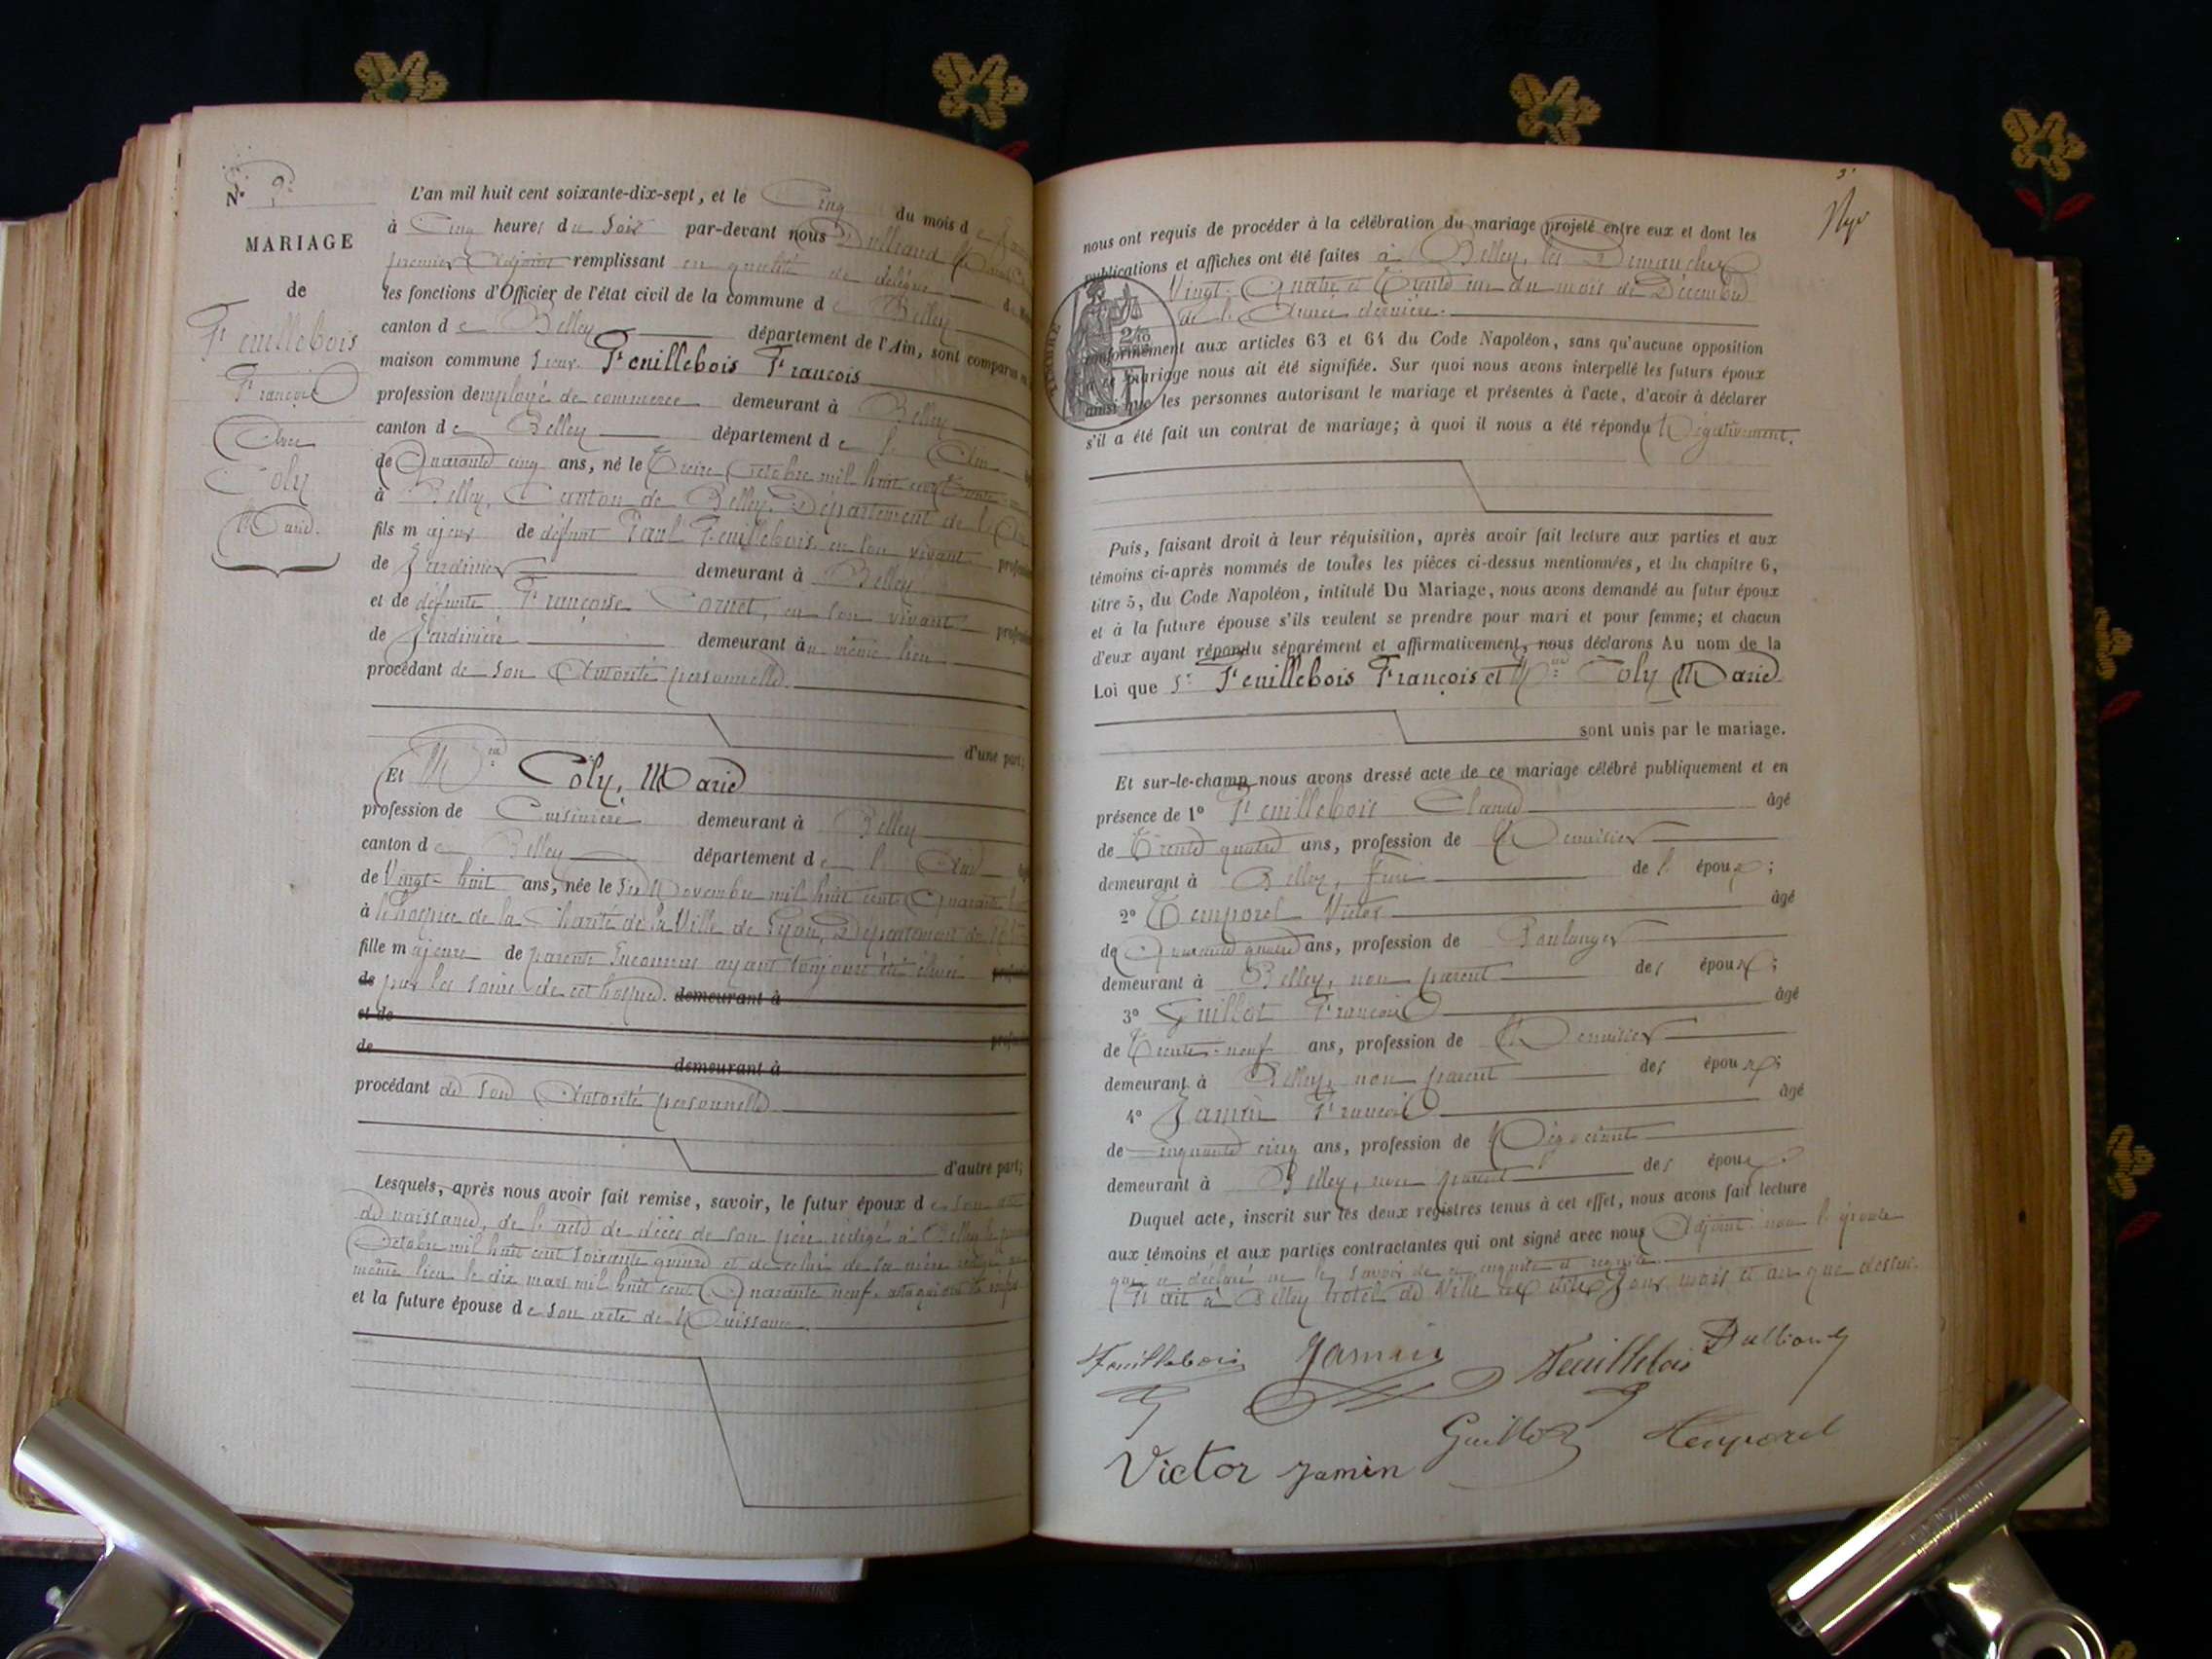 N° 2
MARIAGE
de
Feuillebois
François
Avec
Coly
Marie.
L'an mil huit cent soixante-dix-sept, et le Cinq du mois de
à Cinq heures du Soir par-devant nous
premier Adjoint remplissant en qualité de délégué
les fonctions d'Officier de l'état civil de la commune de Belley
canton de Belley département de l'Ain, sont comparus
maison commune Sieur Feuillebois François
profession d'employé de commerce demeurant à Belley
canton de Belley département de l'Ain
de Quarante cinq ans, né le Treize Octobre mil huit cent Trente
à Belley, Canton de Belley, Département de l'Ain
fils majeur de défunt Paul Feuillebois en son vivant
de Jardinier demeurant à Belley
et de défunte Françoise Cornet, en son vivant
de Jardinière demeurant au même lieu
procédant de son Autorité personnelle.
d'une part;
Et Coly, Marie
profession de Cuisinière demeurant à Belley
canton de Belley département de l'Ain
de Vingt-huit ans, née le Six Novembre mil huit cent Quarante
à l'hospice de la Charité de la Ville de Lyon, Département du
fille majeure de parents Inconnus ayant toujours été élevée
de par les soins de cet hospice. demeurant à
et de
de demeurant à
procédant de son Autorité personnelle
d'autre part;
Lesquels, après nous avoir fait remise, savoir, le futur époux de son
de naissance, de l'acte de décès de son père rédigé à Belley le
Octobre mil huit cent soixante quinze et de celui de sa mère
même lieu le dix mars mil huit cent Quarante neuf.
et la future épouse de son acte de Naissance.
3
nous ont requis de procéder à la célébration du mariage projeté entre eux et dont les
publications et affiches ont été faites à Belley, les Dimanches
Vingt-Quatre et Trente un du mois de Décembre
de l'Année dernière.
TIMBRE
conformément aux articles 63 et 64 du Code Napoléon, sans qu'aucune opposition
à ce mariage nous ait été signifiée. Sur quoi nous avons interpellé les futurs époux
ainsi que les personnes autorisant le mariage et présentes à l'acte, d'avoir à déclarer
s'il a été fait un contrat de mariage; à quoi il nous a été répondu Négativement.
Puis, faisant droit à leur réquisition, après avoir fait lecture aux parties et aux
témoins ci-après nommés de toutes les pièces ci-dessus mentionnées, et du chapitre 6,
titre 5, du Code Napoléon, intitulé Du Mariage, nous avons demandé au futur époux
et à la future épouse s'ils veulent se prendre pour mari et pour femme; et chacun
d'eux ayant répondu séparément et affirmativement, nous déclarons Au nom de la
Loi que Sr Feuillebois François et Coly Marie
sont unis par le mariage.
Et sur-le-champ nous avons dressé acte de ce mariage célébré publiquement et en
présence de 1° Feuillebois Claude âgé
de Trente quatre ans, profession de Menuisier
demeurant à Belley, frère de l'époux;
2° Temporel Victor âgé
de Quarante quatre ans, profession de Boulanger
demeurant à Belley, non parent des époux;
3° Guillot François âgé
de Trente-neuf ans, profession de Menuisier
demeurant à Belley, non parent des époux;
4° Jamin François âgé
de Cinquante cinq ans, profession de Négociant
demeurant à Belley, non parent des époux.
Duquel acte, inscrit sur les deux registres tenus à cet effet, nous avons fait lecture
aux témoins et aux parties contractantes qui ont signé avec nous Adjoint non l'épouse
qui a déclaré ne le savoir de ce enquise et requise.
Fait à Belley hotel de Ville les dits Jour, mois et an que dessus.
Feuillebois Jamin Feuillebois
Victor Jamin Guillot Temporel